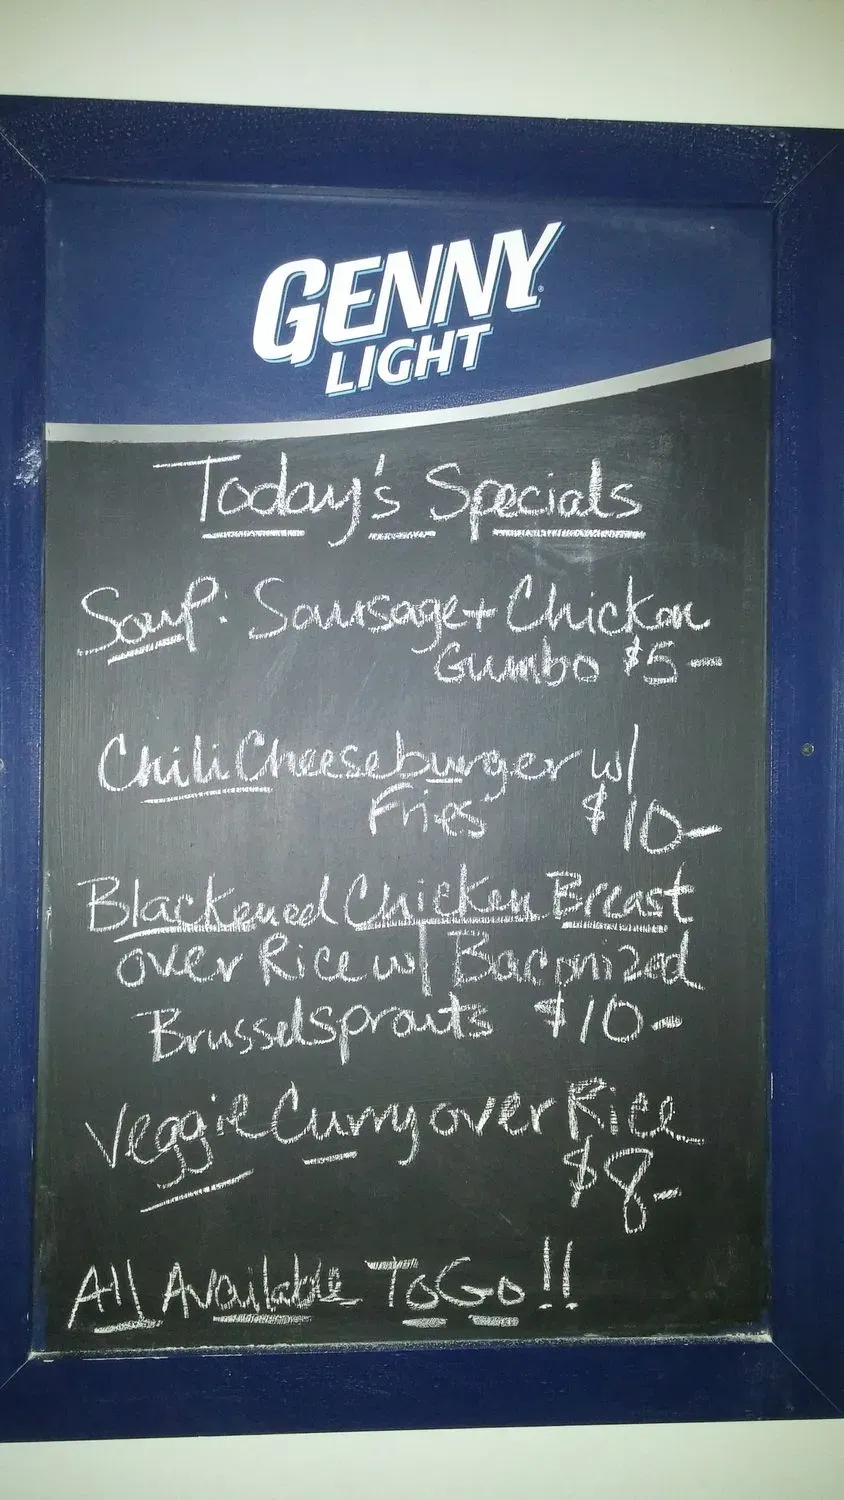 GENNY
LIGHT
Today's Specials
Soup: Sausage + Chicken
Gumbo $5-
Chili Cheeseburger w/
Fries $10-
Blackened Chicken Breast
over Rice w/ Baconized
Brusselsprouts $10-
Veggie Curry over Rice
$8-
All Available To Go!!